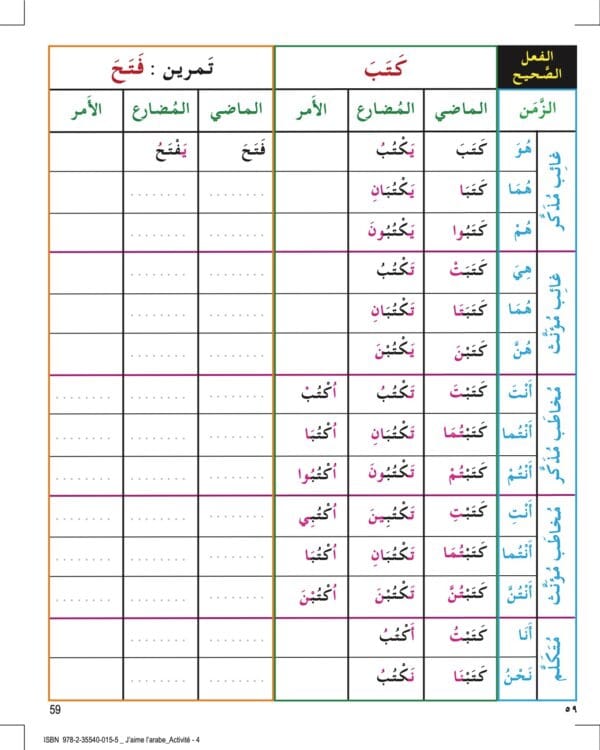 الفعل الصَّحيح كَتَبَ تَمرين : فَتَحَ
الزَّمَن الماضي المُضارع الأَمر الماضي المُضارع الأَمر
غائِب مُذَكَّر
هُوَ كَتَبَ يَكْتُبُ فَتَحَ يَفْتَحُ
هُمَا كَتَبَا يَكْتُبَانِ ........ ........
هُمْ كَتَبُوا يَكْتُبُونَ ........ ........
غائِب مُؤَنَّث
هِيَ كَتَبَتْ تَكْتُبُ ........ ........
هُمَا كَتَبَتَا تَكْتُبَانِ ........ ........
هُنَّ كَتَبْنَ يَكْتُبْنَ ........ ........
مُخاطَب مُذَكَّر
أَنْتَ كَتَبْتَ تَكْتُبُ اُكْتُبْ ........ ........ ........
أَنْتُما كَتَبْتُمَا تَكْتُبَانِ اُكْتُبَا ........ ........ ........
أَنْتُمْ كَتَبْتُمْ تَكْتُبُونَ اُكْتُبُوا ........ ........ ........
مُخاطَب مُؤَنَّث
أَنْتِ كَتَبْتِ تَكْتُبِينَ اُكْتُبِي ........ ........ ........
أَنْتُما كَتَبْتُمَا تَكْتُبَانِ اُكْتُبَا ........ ........ ........
أَنْتُنَّ كَتَبْتُنَّ تَكْتُبْنَ اُكْتُبْنَ ........ ........ ........
مُتَكَلَّم
أَنَا كَتَبْتُ أَكْتُبُ ........ ........
نَحْنُ كَتَبْنَا نَكْتُبُ ........ ........
٥٩
59
ISBN 978-2-35540-015-5 _ J'aime l'arabe_Activité - 4